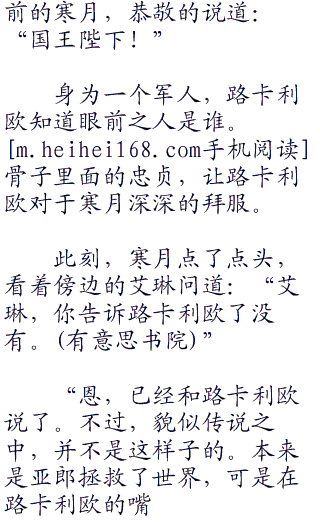 前的寒月，恭敬的说道：
“国王陛下！”
身为一个军人，路卡利
欧知道眼前之人是谁。
[m.heihei168.com手机阅读]
骨子里面的忠贞，让路卡利
欧对于寒月深深的拜服。
此刻，寒月点了点头，
看着傍边的艾琳问道：“艾
琳，你告诉路卡利欧了没
有。(有意思书院)”
“恩，已经和路卡利欧
说了。不过，貌似传说之
中，并不是这样子的。本来
是亚郎拯救了世界，可是在
路卡利欧的嘴